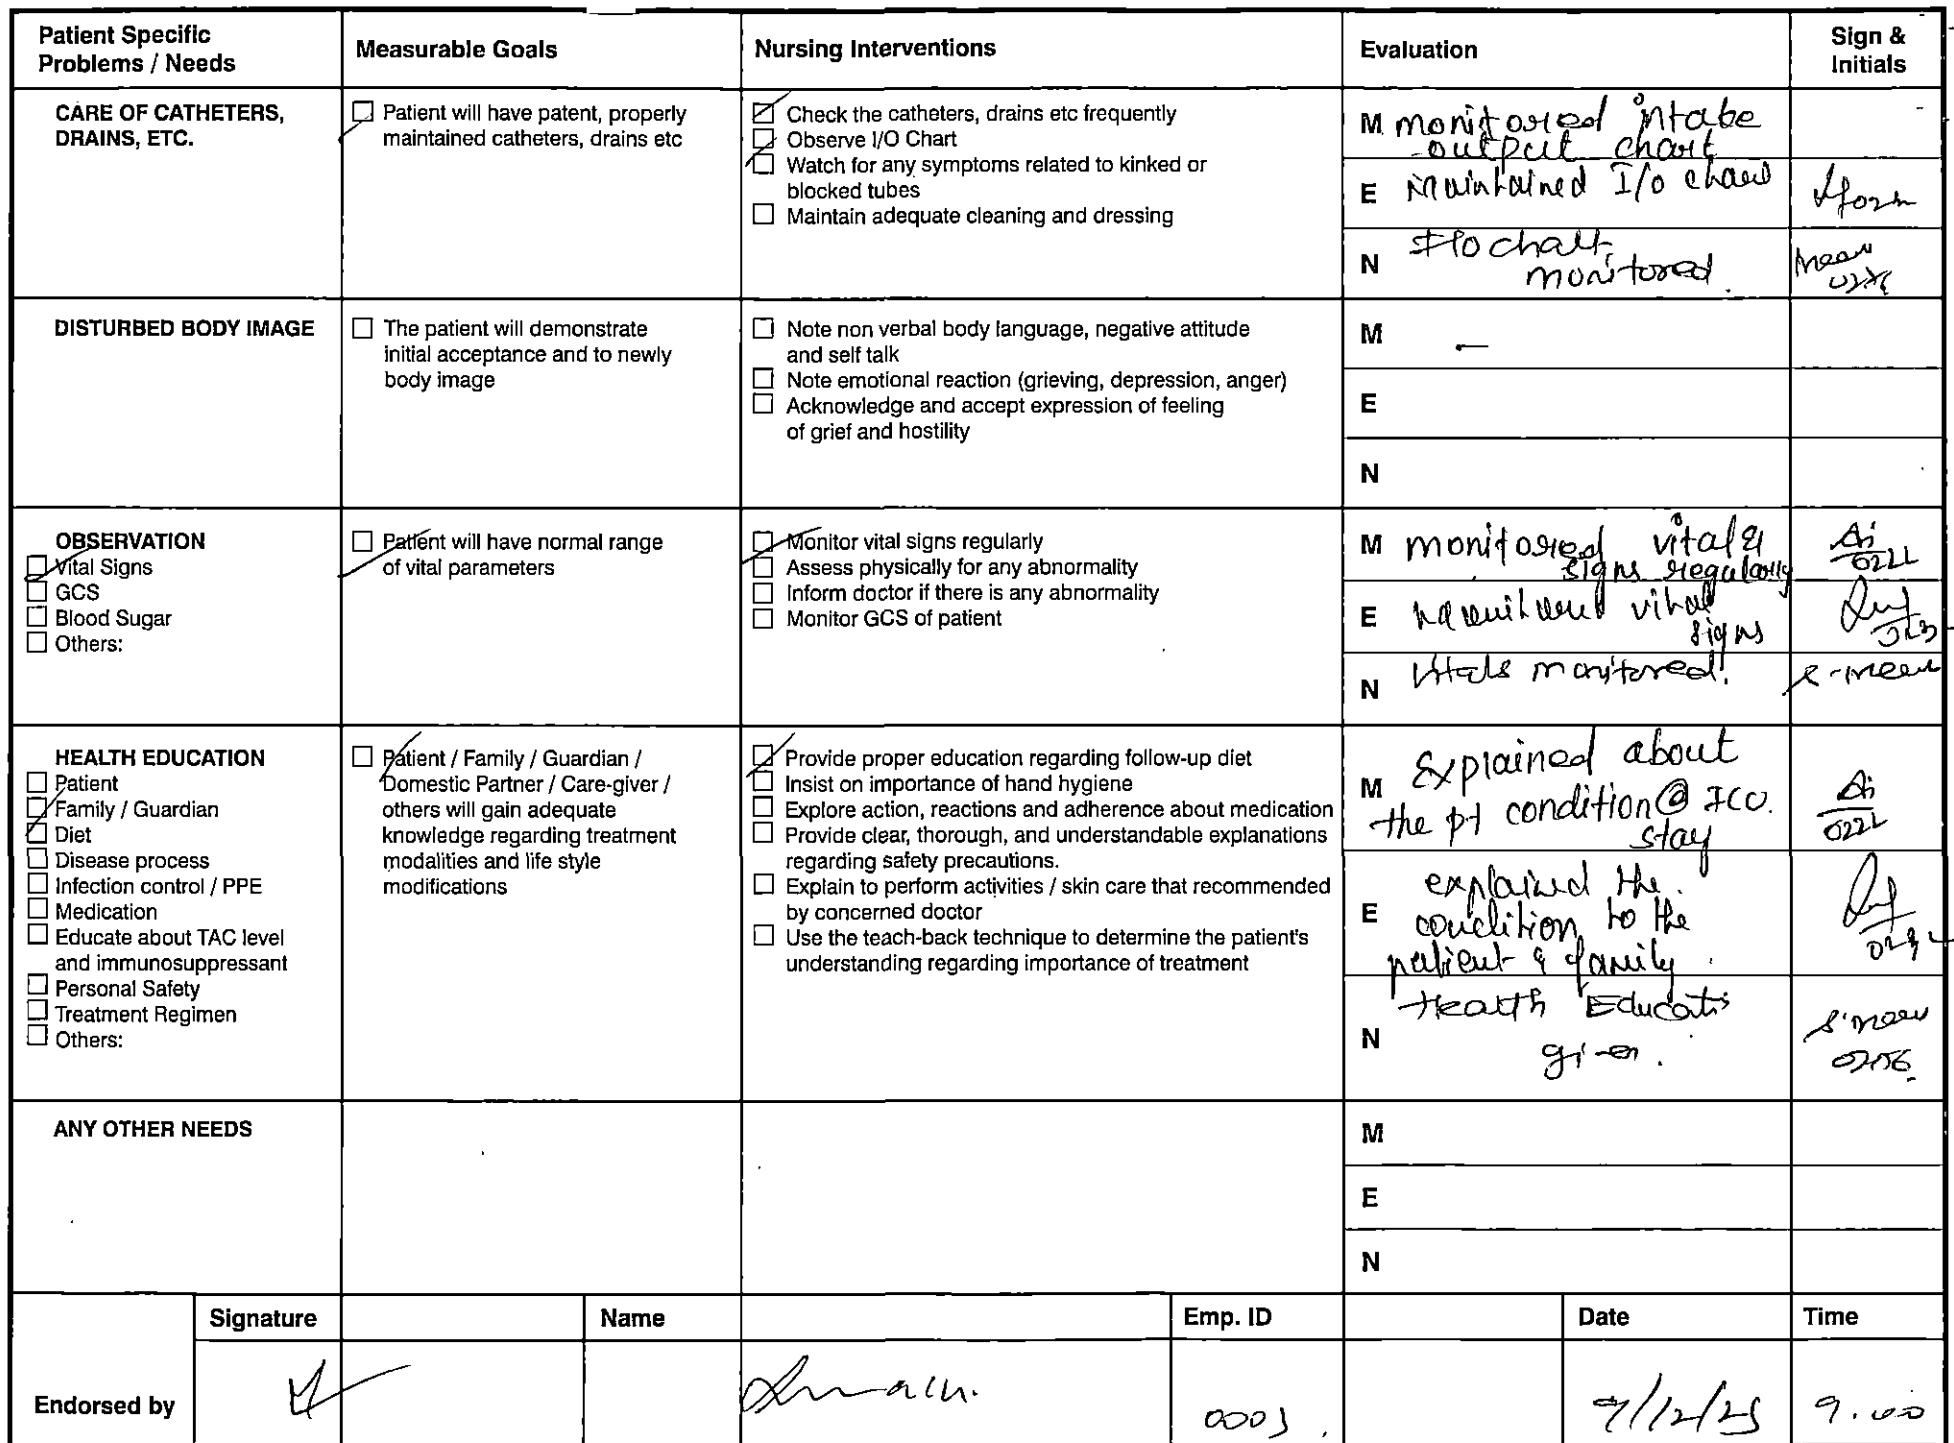 Patient Specific
Problems / Needs
Measurable Goals
Nursing Interventions
Evaluation
Sign &
Initials
CARE OF CATHETERS,
DRAINS, ETC.
☐ Patient will have patent, properly
maintained catheters, drains etc
☑ Check the catheters, drains etc frequently
☐ Observe I/O Chart
☐ Watch for any symptoms related to kinked or
blocked tubes
☐ Maintain adequate cleaning and dressing
M monitored intake
output chart
E Maintained I/O
N I/O chart
monitored.
DISTURBED BODY IMAGE
☐ The patient will demonstrate
initial acceptance and to newly
body image
☐ Note non verbal body language, negative attitude
and self talk
☐ Note emotional reaction (grieving, depression, anger)
☐ Acknowledge and accept expression of feeling
of grief and hostility
M –
E
N
OBSERVATION
☑ Vital Signs
☐ GCS
☐ Blood Sugar
☐ Others:
☑ Patient will have normal range
of vital parameters
☑ Monitor vital signs regularly
☐ Assess physically for any abnormality
☐ Inform doctor if there is any abnormality
☐ Monitor GCS of patient
M monitored vital
signs regularly
0221
E vital
signs
N Vitals monitored.
HEALTH EDUCATION
☐ Patient
☑ Family / Guardian
☐ Diet
☐ Disease process
☐ Infection control / PPE
☐ Medication
☐ Educate about TAC level
and immunosuppressant
☐ Personal Safety
☐ Treatment Regimen
☐ Others:
☑ Patient / Family / Guardian /
Domestic Partner / Care-giver /
others will gain adequate
knowledge regarding treatment
modalities and life style
modifications
☑ Provide proper education regarding follow-up diet
☐ Insist on importance of hand hygiene
☐ Explore action, reactions and adherence about medication
☐ Provide clear, thorough, and understandable explanations
regarding safety precautions.
☐ Explain to perform activities / skin care that recommended
by concerned doctor
☐ Use the teach-back technique to determine the patient's
understanding regarding importance of treatment
M Explained about
the pt condition @ ICU.
stay
0221
E explained the
condition to the
patient & family.
N Health
given.
ANY OTHER NEEDS
M
E
N
Signature
Name
Emp. ID
Date
Time
Endorsed by
9.00